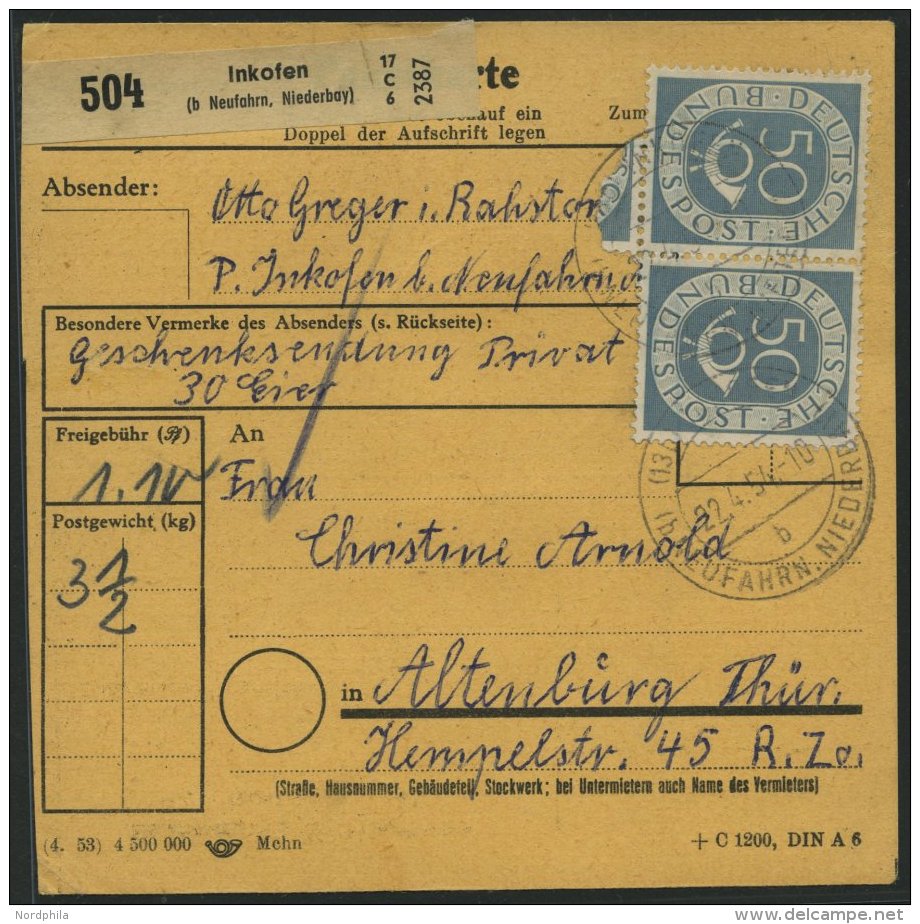 504
Inkofen
(b Neufahrn, Niederbay)
17
C
6
2387
rte
auf ein
Zum
Doppel der Aufschrift legen
DEUTSCHE BUNDESPOST
50
DEUTSCHE BUNDESPOST
50
Absender:
Otto Greger i. Rahstor
P. Inkofen b. Neufahrn
Besondere Vermerke des Absenders (s. Rückseite):
Geschenksendung Privat
30 Eier
Freigebühr (Pf)
1.10
An
Frau
Postgewicht (kg)
3 1/2
Christine Arnold
(13
22.4.54.-10
b
NEUFAHRN, NIEDERB
in Altenburg Thür.
Hempelstr. 45 R. Zo.
(Straße, Hausnummer, Gebäudeteil, Stockwerk; bei Untermietern auch Name des Vermieters)
(4. 53) 4 500 000 Mchn
+ C 1200, DIN A 6
Nordphila
delcampe.net